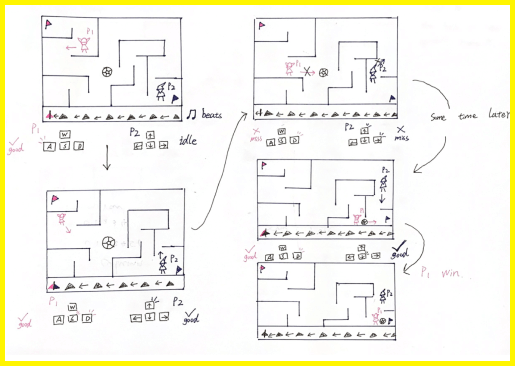 P1
P2
♫ beats
P1
W
A S D
good
P2
↑
← ↓ →
idle
P2
P1
W
A S D
good
P2
↑
← ↓ →
good
P1
P2
miss
W
A S D
P2
↑
← ↓ →
miss
Some time later
P2
P1
good
W
A S D
↑
← ↓ →
good
P1 win.
P2
P1